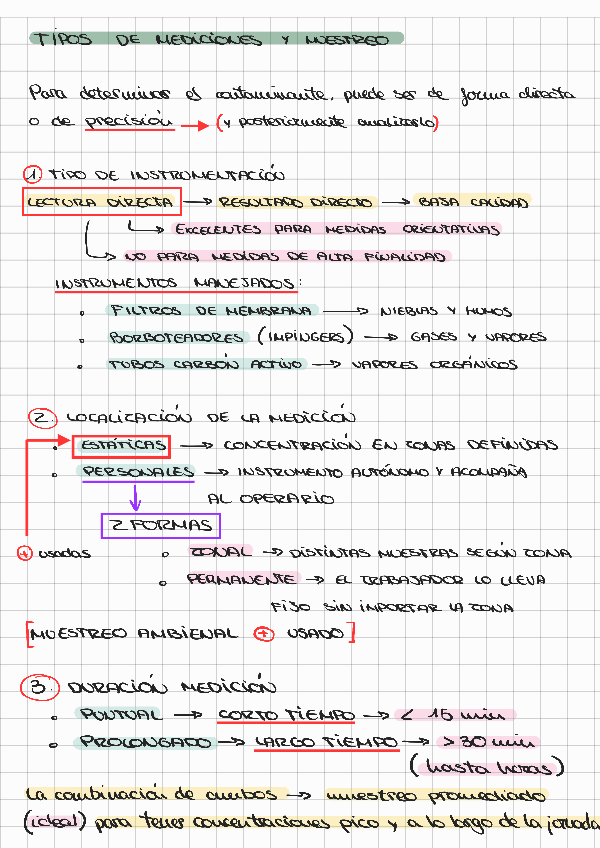 TIPOS DE MEDICIONES Y MUESTREO
Para determinar el contaminante, puede ser de forma directa
o de precisión → (y posteriormente analizarlo)
1. TIPO DE INSTRUMENTACIÓN
LECTURA DIRECTA → RESULTADO DIRECTO → BAJA CALIDAD
↳ EXCELENTES PARA MEDIDAS ORIENTATIVAS
↳ NO PARA MEDIDAS DE ALTA FINALIDAD
INSTRUMENTOS MANEJADOS:
• FILTROS DE MEMBRANA → NIEBLAS Y HUMOS
• BORBOTEADORES (IMPINGERS) → GASES Y VAPORES
• TUBOS CARBÓN ACTIVO → VAPORES ORGÁNICOS
2. LOCALIZACIÓN DE LA MEDICIÓN
• ESTÁTICAS → CONCENTRACIÓN EN ZONAS DEFINIDAS
• PERSONALES → INSTRUMENTO AUTÓNOMO Y ACOMPAÑA
AL OPERARIO
2 FORMAS
+ usadas
• ZONAL → DISTINTAS MUESTRAS SEGÚN ZONA
• PERMANENTE → EL TRABAJADOR LO LLEVA
FIJO SIN IMPORTAR LA ZONA
[MUESTREO AMBIENAL + USADO]
3. DURACIÓN MEDICIÓN
• PUNTUAL → CORTO TIEMPO → < 15 min
• PROLONGADO → LARGO TIEMPO → >30 min
(hasta horas)
La combinación de ambos → muestreo promediado
(ideal) para tener concentraciones pico y a lo largo de la jornada